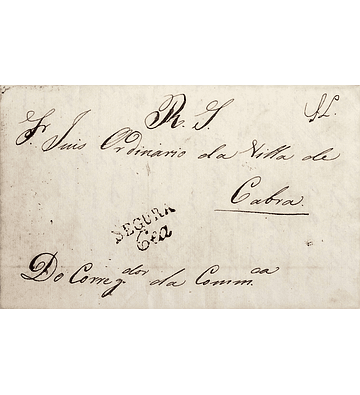 R. S.
Sr. Juis Ordinario da Villa de
Cabra.
SEGURA
Do Correg.dor da Comm.ca